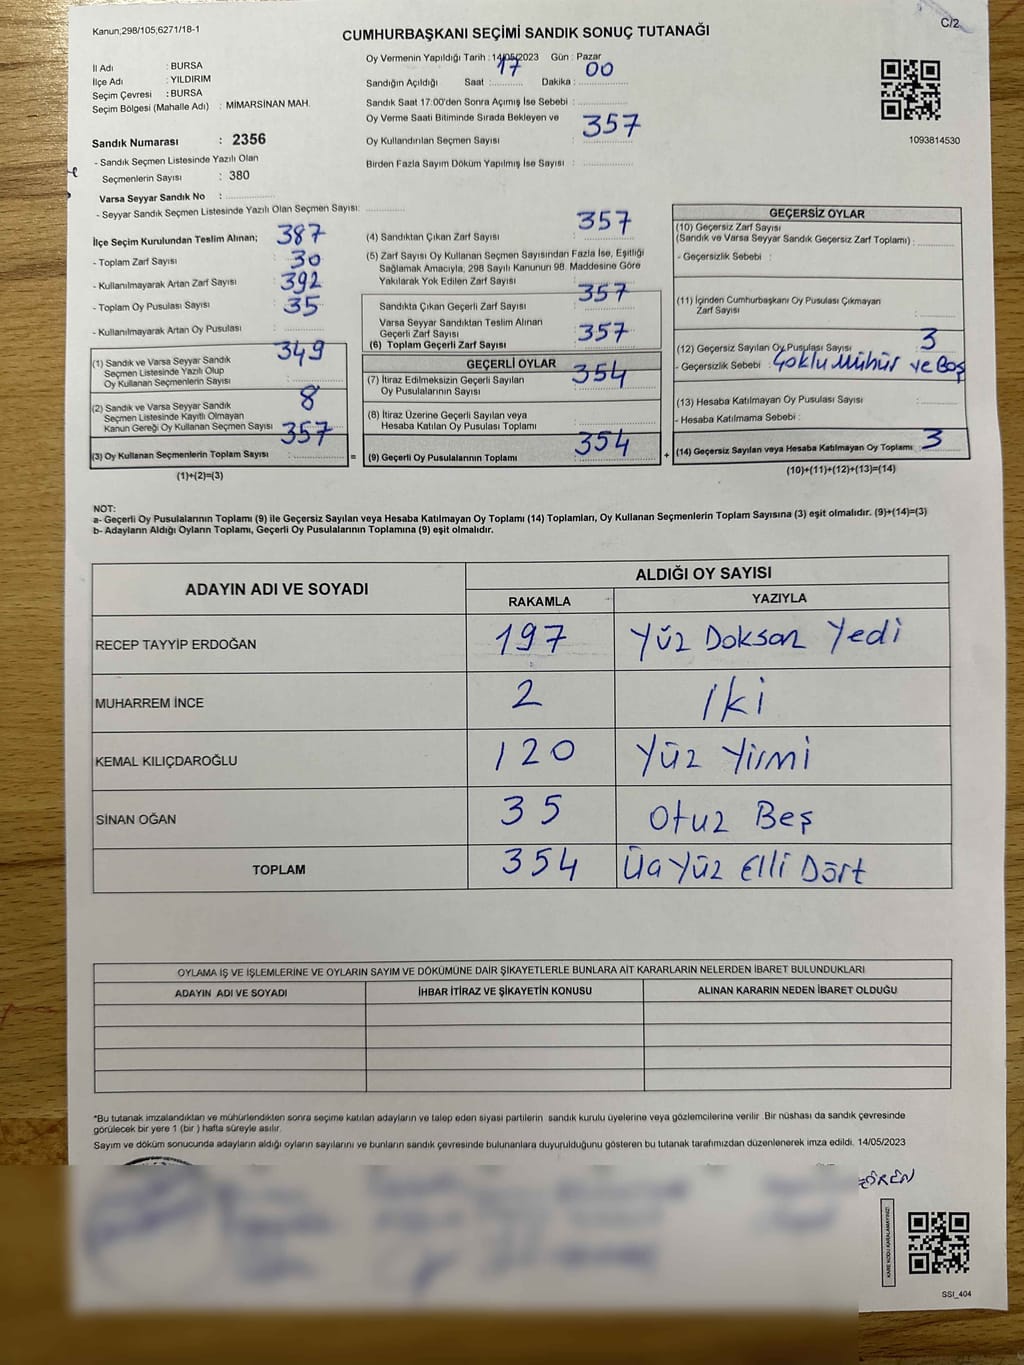 Kanun;298/105;6271/18-1
C/2
CUMHURBAŞKANI SEÇİMİ SANDIK SONUÇ TUTANAĞI
İl Adı : BURSA
İlçe Adı : YILDIRIM
Seçim Çevresi : BURSA
Seçim Bölgesi (Mahalle Adı) : MİMARSİNAN MAH.
Sandık Numarası : 2356
- Sandık Seçmen Listesinde Yazılı Olan
Seçmenlerin Sayısı : 380
Varsa Seyyar Sandık No :
- Seyyar Sandık Seçmen Listesinde Yazılı Olan Seçmen Sayısı:
Oy Vermenin Yapıldığı Tarih : 14/05/2023 Gün : Pazar
Sandığın Açıldığı Saat : 17 Dakika : 00
Sandık Saat 17:00'den Sonra Açımış İse Sebebi :
Oy Verme Saati Bitiminde Sırada Bekleyen ve
Oy Kullandırılan Seçmen Sayısı : 357
Birden Fazla Sayım Döküm Yapılmış İse Sayısı :
1093814530
İlçe Seçim Kurulundan Teslim Alınan;
- Toplam Zarf Sayısı : 387
- Kullanılmayarak Artan Zarf Sayısı : 30
- Toplam Oy Pusulası Sayısı : 392
- Kullanılmayarak Artan Oy Pusulası : 35
(1) Sandık ve Varsa Seyyar Sandık
Seçmen Listesinde Yazılı Olup
Oy Kullanan Seçmenlerin Sayısı : 349
(2) Sandık ve Varsa Seyyar Sandık
Seçmen Listesinde Kayıtlı Olmayan
Kanun Gereği Oy Kullanan Seçmen Sayısı : 8
(3) Oy Kullanan Seçmenlerin Toplam Sayısı : 357
(1)+(2)=(3)
=
(4) Sandıktan Çıkan Zarf Sayısı : 357
(5) Zarf Sayısı Oy Kullanan Seçmen Sayısından Fazla İse, Eşitliği
Sağlamak Amacıyla, 298 Sayılı Kanunun 98. Maddesine Göre
Yakılarak Yok Edilen Zarf Sayısı :
Sandıkta Çıkan Geçerli Zarf Sayısı : 357
Varsa Seyyar Sandıktan Teslim Alınan
Geçerli Zarf Sayısı :
(6) Toplam Geçerli Zarf Sayısı : 357
GEÇERLİ OYLAR
(7) İtiraz Edilmeksizin Geçerli Sayılan
Oy Pusulasının Sayısı : 354
(8) İtiraz Üzerine Geçerli Sayılan veya
Hesaba Katılan Oy Pusulası Toplamı :
(9) Geçerli Oy Pusulalarının Toplamı : 354
+
GEÇERSİZ OYLAR
(10) Geçersiz Zarf Sayısı
(Sandık ve Varsa Seyyar Sandık Geçersiz Zarf Toplamı) :
- Geçersizlik Sebebi :
(11) İçinden Cumhurbaşkanı Oy Pusulası Çıkmayan
Zarf Sayısı :
(12) Geçersiz Sayılan Oy Pusulası Sayısı : 3
- Geçersizlik Sebebi : Çoklu Mühür ve Boş
(13) Hesaba Katılmayan Oy Pusulası Sayısı :
- Hesaba Katılmama Sebebi :
(14) Geçersiz Sayılan veya Hesaba Katılmayan Oy Toplamı : 3
(10)+(11)+(12)+(13)=(14)
NOT:
a- Geçerli Oy Pusulalarının Toplamı (9) ile Geçersiz Sayılan veya Hesaba Katılmayan Oy Toplamı (14) Toplamları, Oy Kullanan Seçmenlerin Toplam Sayısına (3) eşit olmalıdır. (9)+(14)=(3)
b- Adayların Aldığı Oyların Toplamı, Geçerli Oy Pusulalarının Toplamına (9) eşit olmalıdır.
ADAYIN ADI VE SOYADI
ALDIĞI OY SAYISI
RAKAMLA YAZIYLA
RECEP TAYYİP ERDOĞAN 197 Yüz Doksan Yedi
MUHARREM İNCE 2 İki
KEMAL KILIÇDAROĞLU 120 Yüz Yirmi
SİNAN OĞAN 35 Otuz Beş
TOPLAM 354 Üç Yüz Elli Dört
OYLAMA İŞ VE İŞLEMLERİNE VE OYLARIN SAYIM VE DÖKÜMÜNE DAİR ŞİKAYETLERLE BUNLARA AİT KARARLARIN NELERDEN İBARET BULUNDUKLARI
ADAYIN ADI VE SOYADI İHBAR İTİRAZ VE ŞİKAYETİN KONUSU ALINAN KARARIN NEDEN İBARET OLDUĞU
*Bu tutanak imzalandıktan ve mühürlendikten sonra seçime katılan adayların ve talep eden siyasi partilerin sandık kurulu üyelerine veya gözlemcilerine verilir. Bir nüshası da sandık çevresinde
görülecek bir yere 1 (bir ) hafta süreyle asılır.
Sayım ve döküm sonucunda adayların aldığı oyların sayılarını ve bunların sandık çevresinde bulunanlara duyurulduğunu gösteren bu tutanak tarafımızdan düzenlenerek imza edildi. 14/05/2023
KARE KODU KARALAMAYINIZ!
SSI_404